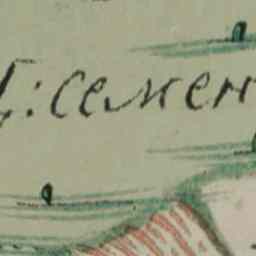 :семен